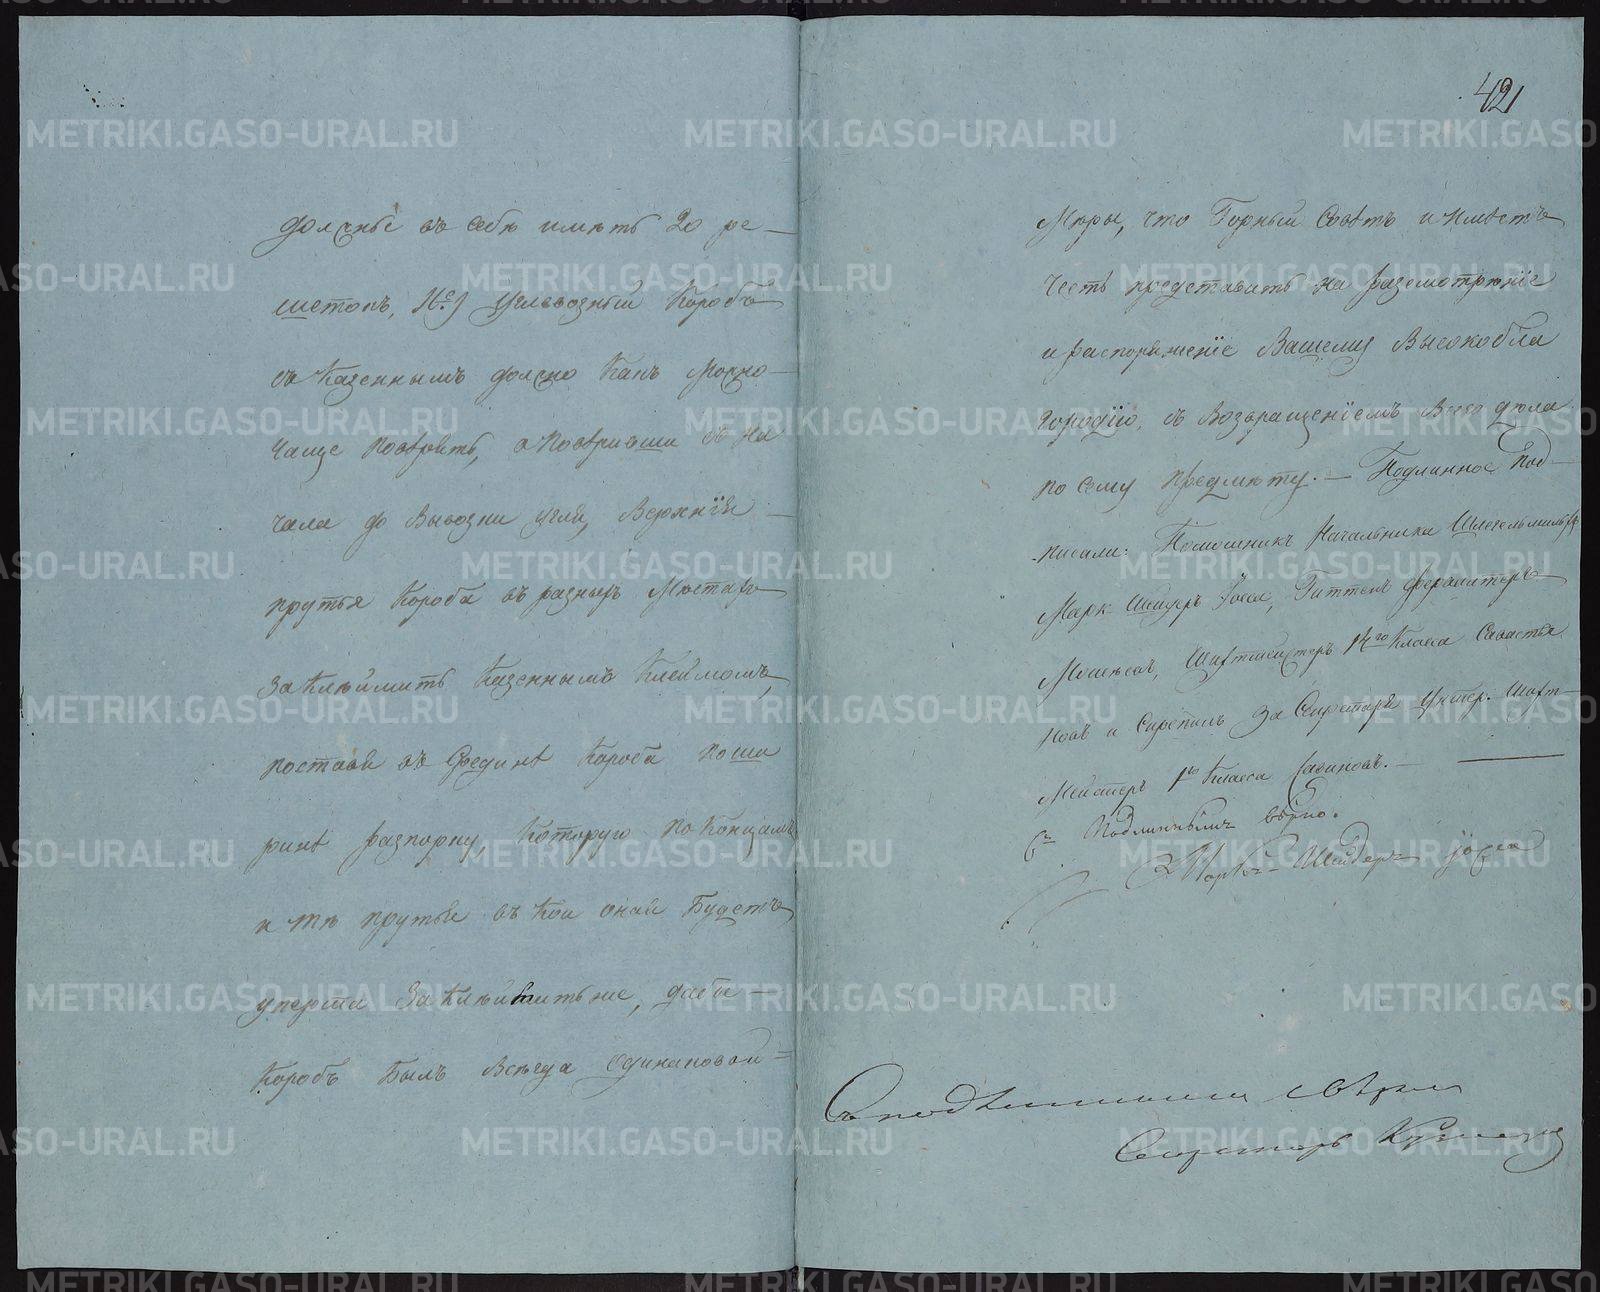 должнъ въ себѣ имѣть 20 ре-
шетокъ, Не) углевозный коробъ
съ казеннымъ должно какъ можно
чаще повѣрять, а повѣривши съ на
чала до вывозки угля, верхнія
прутья короба въ разныхъ мѣстахъ
заклѣймить казеннымъ клеймомъ,
поставя въ срединѣ короба по ши
ринѣ разпорку, которую по концамъ
и тѣ прутья въ кои оная будетъ
уперта заклѣймить же, дабы
коробъ былъ всегда одинаковой
421
мѣры, что Горный Совѣтъ и имѣетъ
честь представить на разсмотрѣніе
и распоряженіе Вашему Высокобла
городію, съ возвращеніемъ всего дѣла
по сему предмету. – Подлинное под-
писали: Помошникъ Начальника
Марк-шейдеръ Іосса, Гиттенъ фервалтеръ
Шихтмейстеръ 14го класса Савастья
новъ и скрѣпилъ за Секретаря Унтер-Шихт-
мейстеръ 1го класса
Съ подлиннымъ вѣрно.
Маркъ-Шейдеръ Іосса
Съ подлиннымъ свѣрялъ
Секретарь
METRIKI.GASO-URAL.RU